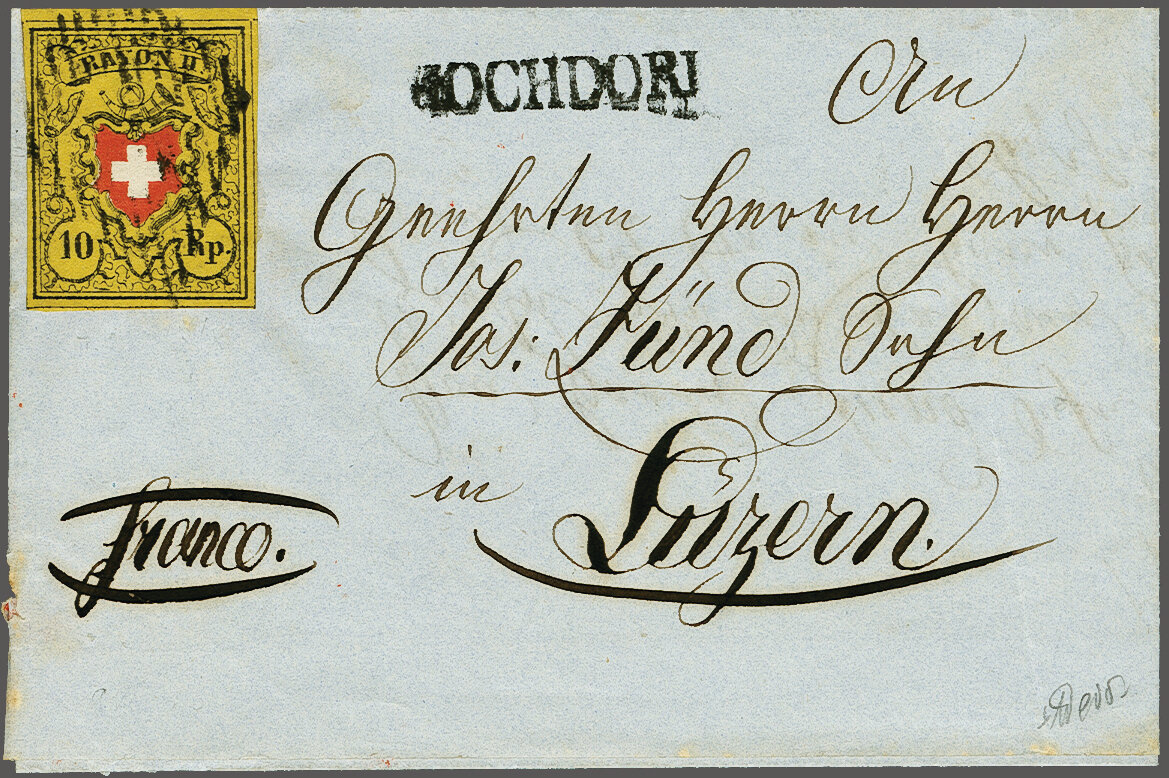 RAYON II.
10 Rp.
HOCHDORF
An
Geehrten Herrn Herrn
Jos: Fünd Sohn
in Luzern.
franco.